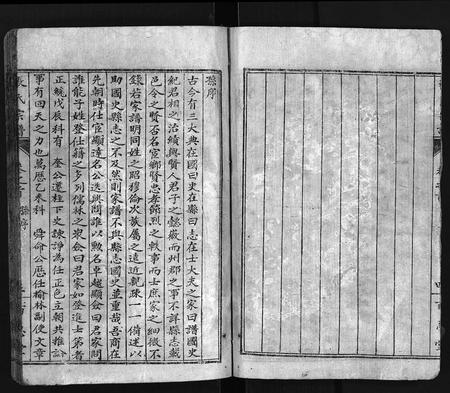 孫序
古今有三大典在國曰史在縣曰志在士大夫之家曰譜國史
紀君相之治績與賢人君子之懿徽而州郡之事不詳縣志載
邑令之賢否名宦鄉賢忠孝節烈之軼事而士庶家之細微不
錄若家譜明同姓之昭穆倫次族屬之遠近親疎一一備述以
助國史縣志之不及然則家譜不與縣志國史並重哉吾商在
先朝時仕宦顯達名公迭興問誰以勲名卓越顯僉曰君家問
誰能子姓登仕籍之多列儒林之衆僉曰君家如登進士第者
正統戊辰科有 奎公選柱下史諫諍為任正色立朝共推設
事有回天之力也萬歷乙未科 舜命公歷任榆林副使文章
張氏宗譜
卷之首
孫序